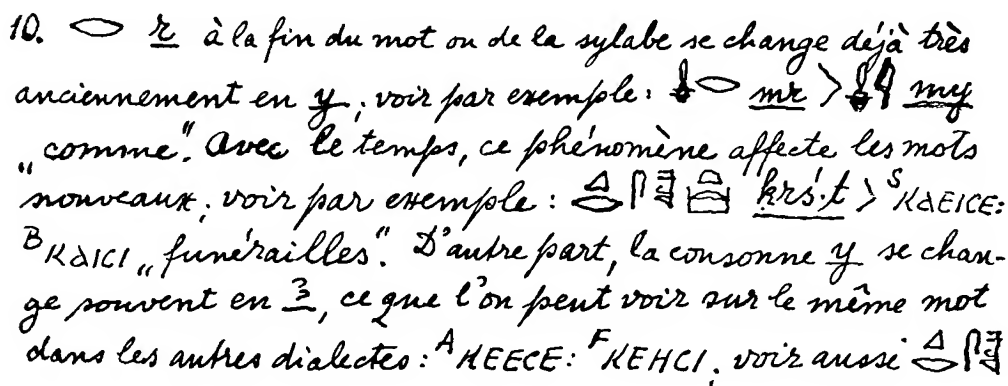 10. 𓂋 r à la fin du mot ou de la sylabe se change déjà très
anciennement en y; voir par exemple: 𓌸𓂋 mr > 𓏇𓇋 my
„comme". Avec le temps, ce phénomène affecte les mots
nouveaux; voir par exemple: ḳrś.t > ˢⲔⲀⲈⲒⲤⲈ:
ᴮⲔⲀⲒⲤⲒ „funérailles". D'autre part, la consonne y se chan-
ge souvent en ꜣ, ce que l'on peut voir sur le même mot
dans les autres dialectes: ᴬⲔⲈⲈⲤⲈ: ᶠⲔⲈⲎⲤⲒ; voir aussi